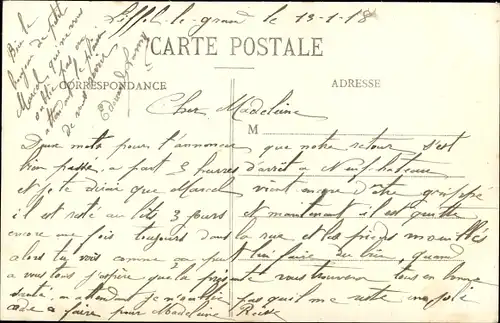 Liffol-le-grand le 13-1-18
Bien le
de petit
Marcel qui ne vous
oublie pas en
attendant le plaisir
de vous revoir
Edouard
CARTE POSTALE
CORRESPONDANCE
ADRESSE
Cher Madeleine
M
Deux mots pour t'annoncer que notre retour s'est
bien passé a part 3 heures d'arrêt a Neufchateau
et je te dirai que Marcel vient encore d'être grippé
il est resté au lits 3 jours et maintenant il est
encore une fois toujours dans la rue et les pieds mouillés
alors tu vois comme sa peut lui faire du bien, quand
a vous tous j'espère que la présente vous trouvera tous en bonne
santé, en attendant je
a faire pour Madeleine